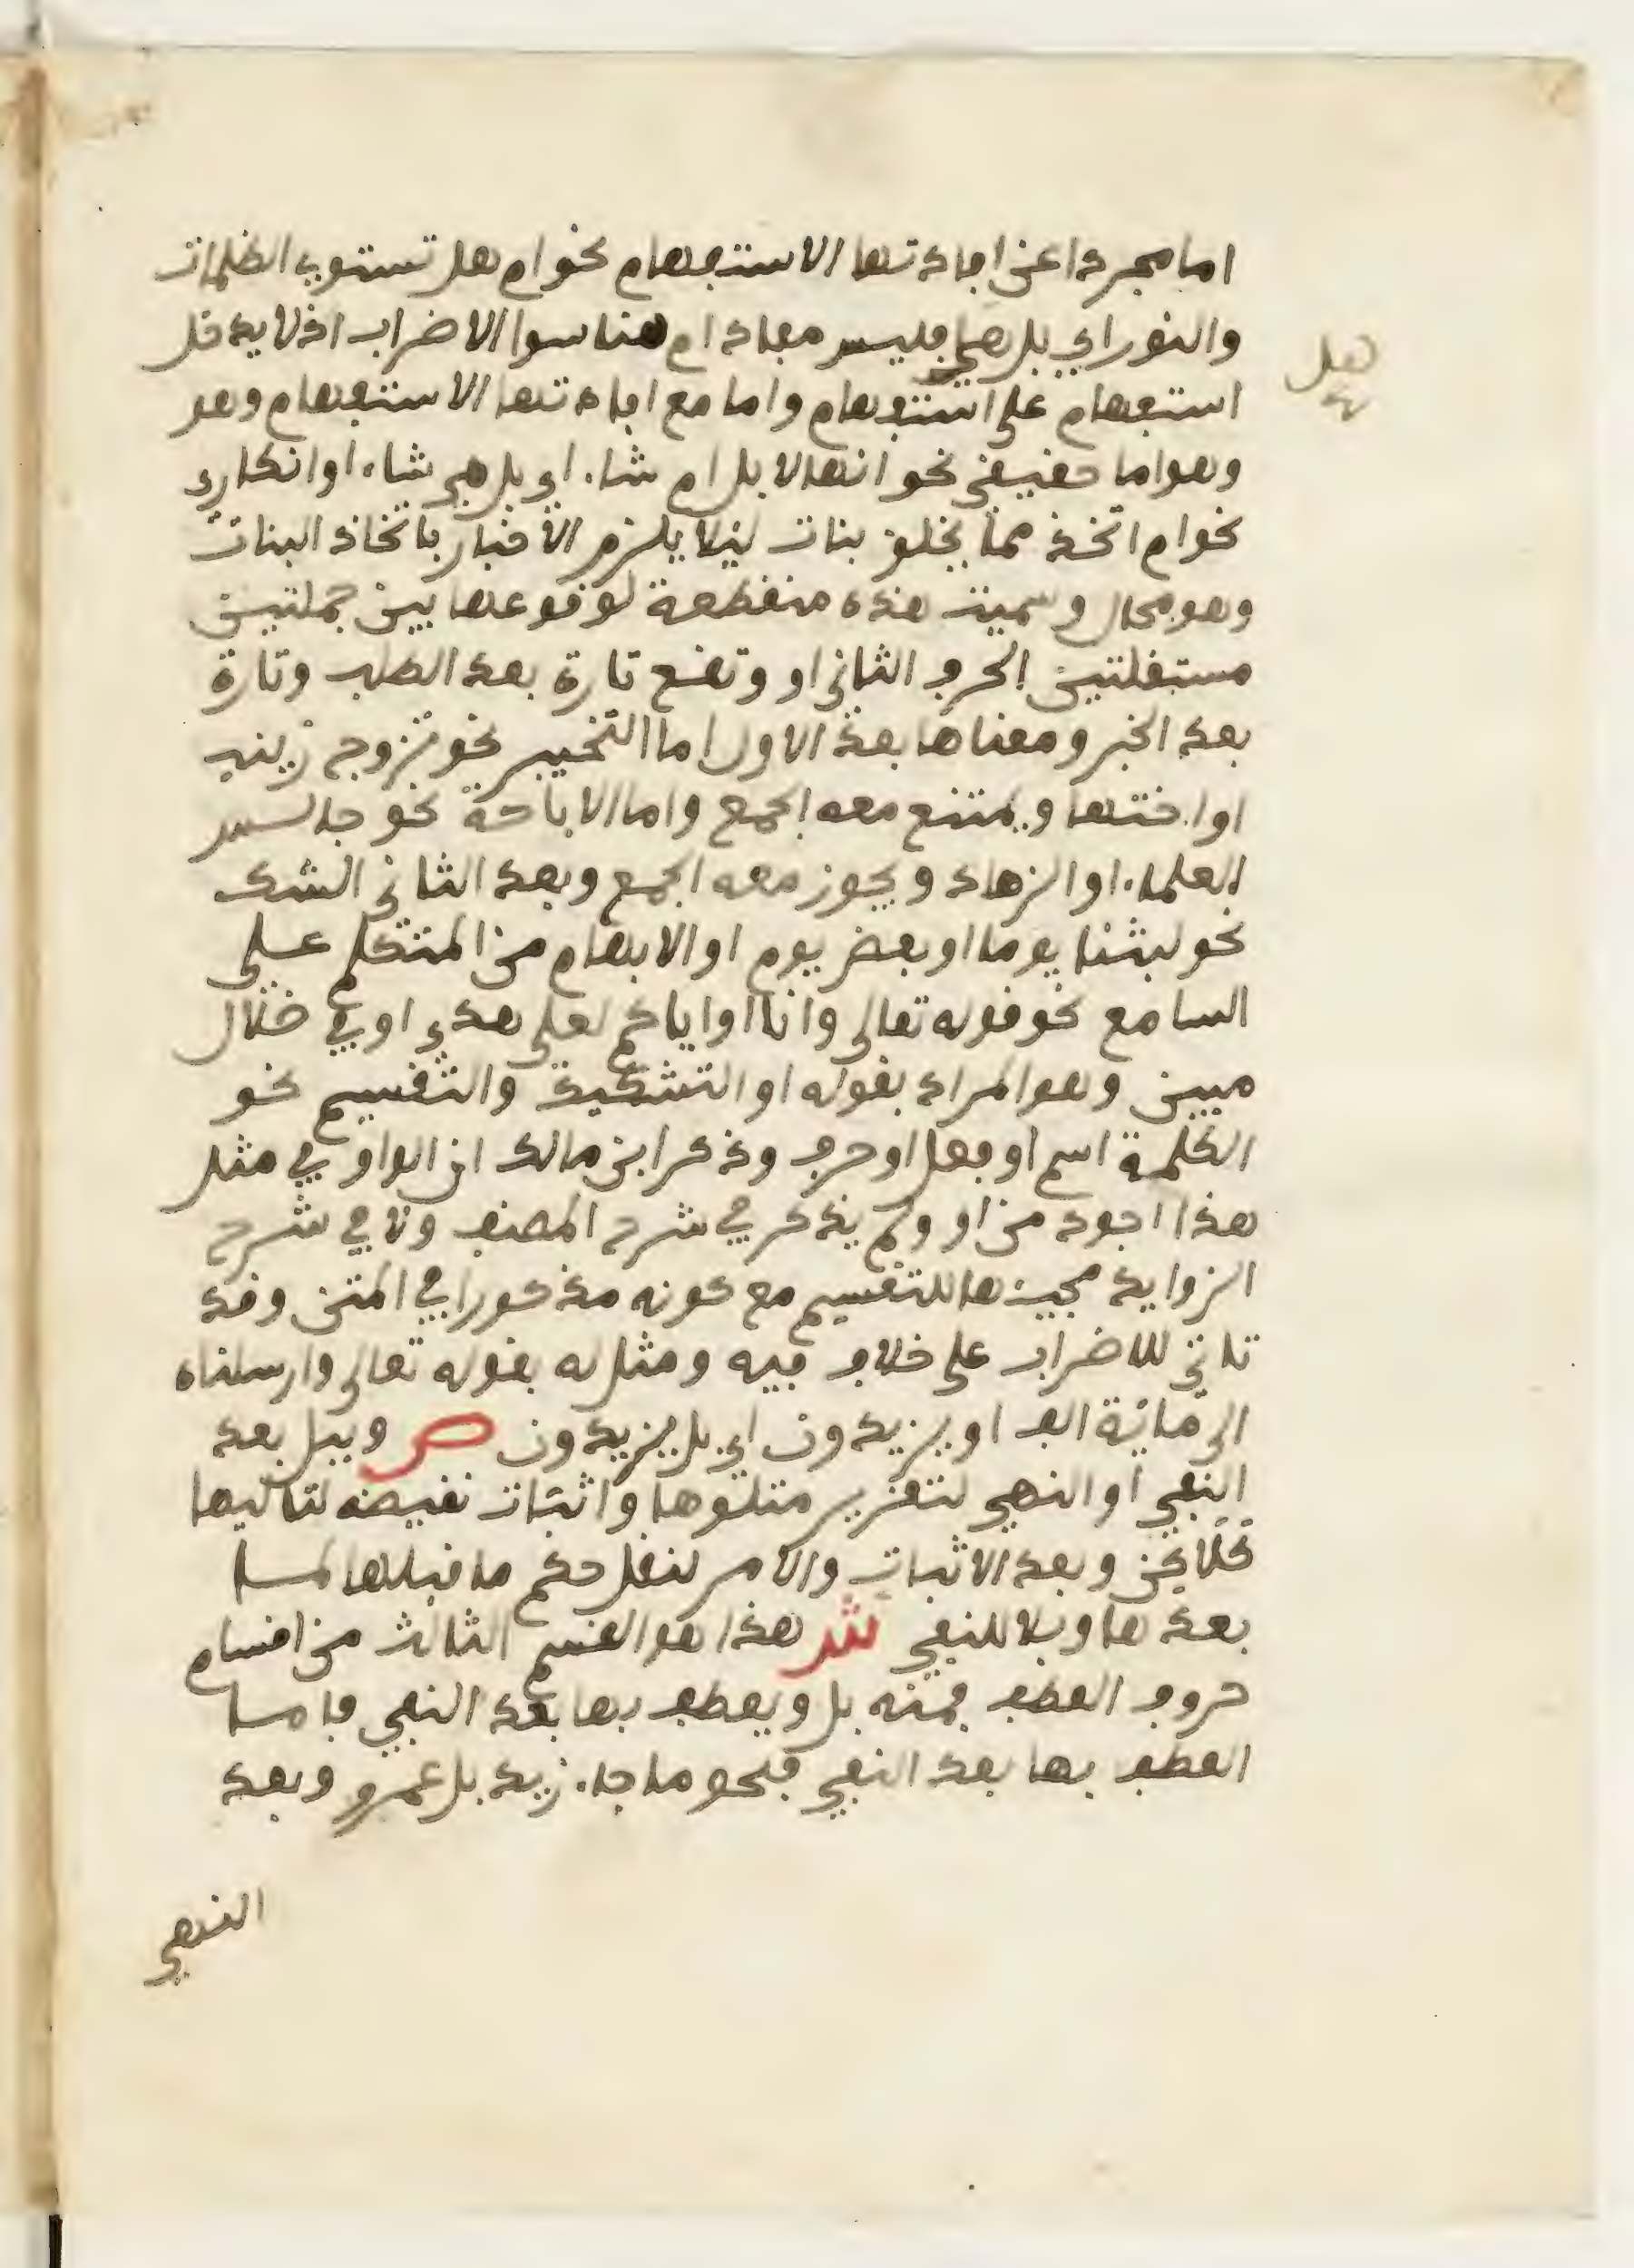 اما مجردا عن افادتها الاستفهام نحو ام هل تستوي الظلمات
والنور اي بل هي فليس مفاد ام هنا سوا الاضراب اذ لا يدخل
هل
استفهام على استفهام واما مع افادتها الاستفهام وهو
وهو اما حقيقي نحو انها لابل ام شاء اي بل هي شاء او انكاري
نحو ام اتخذ مما يخلق بنات ليلا يلزم الاخبار باتخاذ البنات
وهو محال وسميت هذه منقطعة لوقوعها بين جملتين
مستقلتين الحرف الثاني او وتقع تارة بعد الطلب وتارة
بعد الخبر ومعناها بعد الاول اما التخيير نحو تزوج زينب
او اختها ويمتنع معه الجمع واما الاباحة نحو جالس
العلماء او الزهاد ويجوز معه الجمع وبعد الثاني الشك
نحو لبثنا يوما او بعض يوم او الابهام من المتكلم على
السامع نحو قوله تعالى وانا او اياكم لعلى هدى او في ضلال
مبين وهو المراد بقوله او التشكيك والتقسيم نحو
الكلمة اسم او فعل او حرف وذكر ابن مالك ان الواو في مثل
هذا اجود من او ولم يذكر في شرح المصنف ولا في شرح
الزوايد مجيئها للتقسيم مع كونه مذكورا في المتن وقد
تاتي للاضراب على خلاف فيه ومثل له بقوله تعالى وارسلناه
الى مائة الف او يزيدون اي بل يزيدون ص وببل بعد
النفي او النهي لتقرير متلوها واثبات نقيضه لتاليها
كلاكن وبعد الاثبات والامر لنقل حكم ما قبلها لما
بعدها وبلا للنفي ش هذا هو القسم الثالث من اقسام
حروف العطف فمنه بل ويعطف بها بعد النفي فاما
العطف بها بعد النفي فنحو ما جاء زيد بل عمرو وبعد
النهي